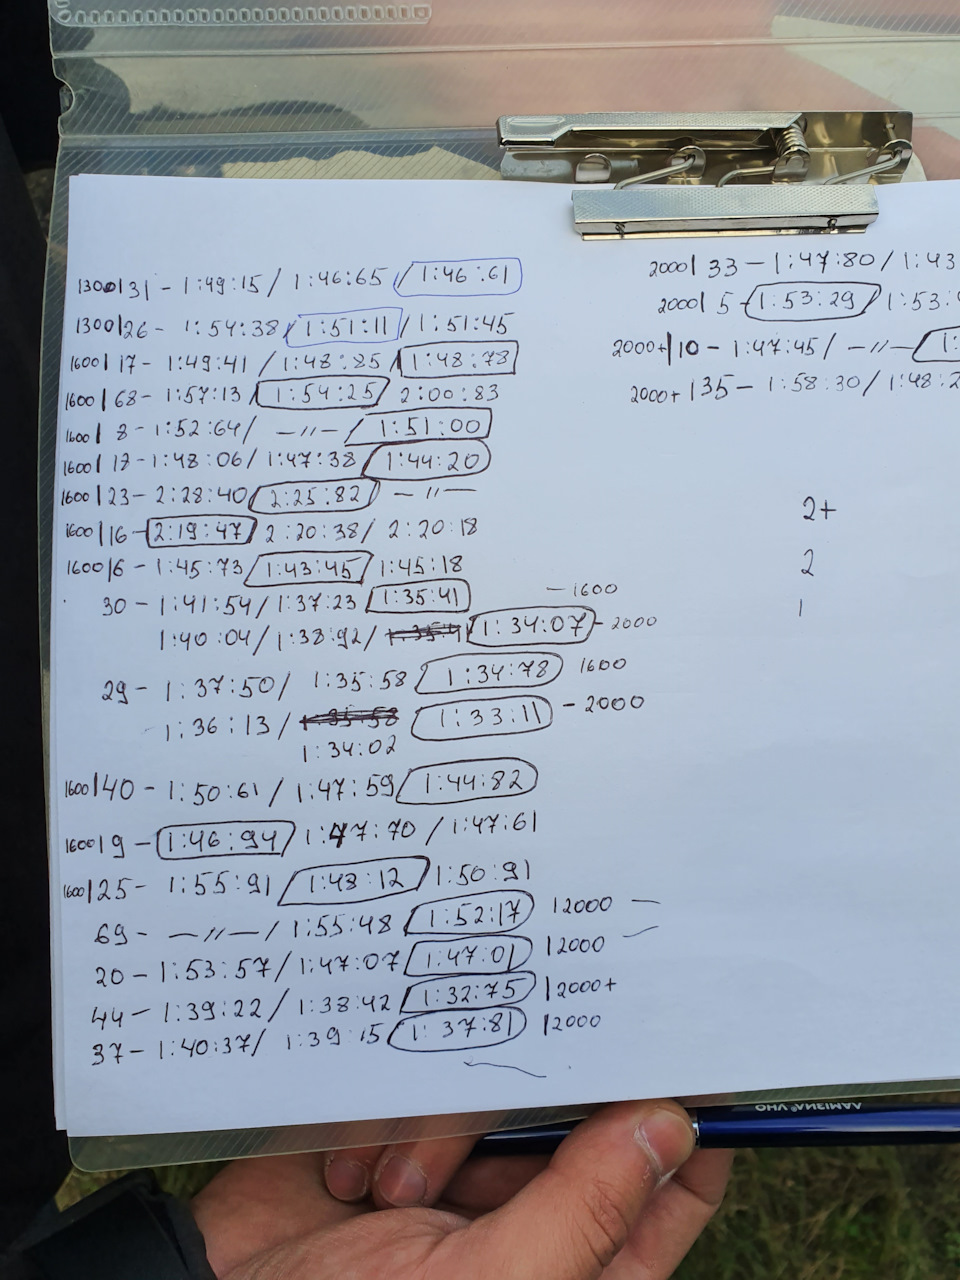 1300|31 - 1:49:15 / 1:46:65 / 1:46:61
1300|26 - 1:54:38 / 1:51:11 / 1:51:45
1600|17 - 1:49:41 / 1:48:85 / 1:48:78
1600|68 - 1:57:13 / 1:54:25 / 2:00:83
1600|8 - 1:52:64 / -//- / 1:51:00
1600|12 - 1:48:06 / 1:47:38 / 1:44:20
1600|23 - 2:28:40 / 2:25:82 / -//-
1600|16 - 2:19:47 / 2:20:38 / 2:20:18
1600|6 - 1:45:73 / 1:43:45 / 1:45:18
30 - 1:41:54 / 1:37:23 / 1:35:41 - 1600
1:40:04 / 1:38:92 / 1:34:07 - 2000
29 - 1:37:50 / 1:35:58 / 1:34:78 1600
1:36:13 / 1:33:11 - 2000
1:34:02
1600|40 - 1:50:61 / 1:47:59 / 1:44:82
1600|9 - 1:46:94 / 1:47:70 / 1:47:61
1600|25 - 1:55:91 / 1:43:12 / 1:50:91
69 - -//- / 1:55:48 / 1:52:17 |2000 -
20 - 1:53:57 / 1:47:07 / 1:47:01 |2000
44 - 1:39:22 / 1:38:42 / 1:32:75 |2000+
37 - 1:40:37 / 1:39:15 / 1:37:81 |2000
2000|33 - 1:47:80 / 1:43
2000|5 - 1:53:29 / 1:53:
2000+|10 - 1:47:45 / -//- / 1:
2000+|35 - 1:58:30 / 1:48:2
2+
2
1